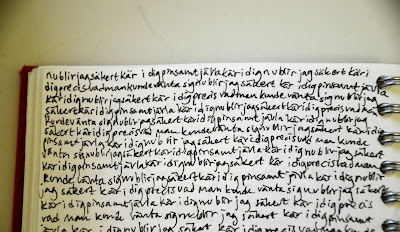 nu blir jag säkert kär i dig pinsamt jävla kär i dig nu blir jag säkert kär i
dig precis vad man kunde vänta sig nu blir jag säkert kär i dig pinsamt jävla
kär i dig nu blir jag säkert kär i dig precis vad man kunde vänta sig nu blir jag
säkert kär i dig pinsamt jävla kär i dig nu blir jag säkert kär i dig precis vad man
kunde vänta sig nu blir jag säkert kär i dig pinsamt jävla kär i dig nu blir jag
säkert kär i dig precis vad man kunde vänta sig nu blir jag säkert kär i dig
pinsamt jävla kär i dig nu blir jag säkert kär i dig precis vad man kunde
vänta sig nu blir jag säkert kär i dig pinsamt jävla kär i dig nu blir jag säkert
pinsamt jävla kär i dig nu blir jag säkert kär i dig precis vad man
kunde vänta sig nu blir jag säkert kär i dig pinsamt jävla kär i dig nu blir
jag säkert kär i dig precis vad man kunde vänta sig nu blir jag säkert
kär i dig pinsamt jävla kär i dig nu blir jag säkert kär i dig precis
vad man kunde vänta sig nu blir jag säkert kär i dig pinsamt
jävla kär i dig nu blir jag säkert kär i dig precis vad man